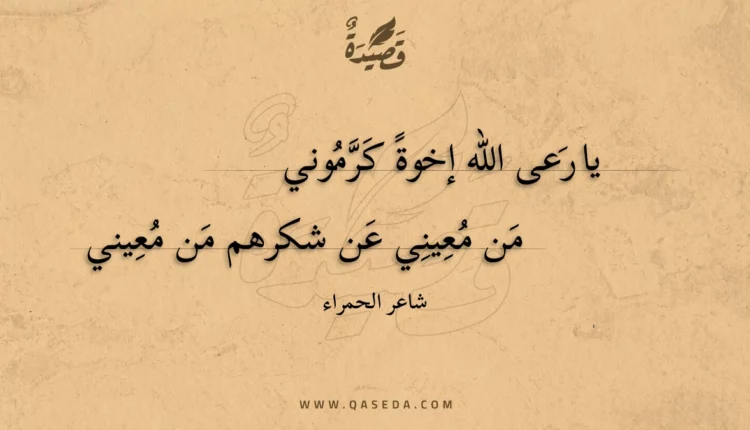 قَصِيدَةٌ
يا رَعى الله إخوةً كَرَّمُوني
مَن مُعِينِي عَن شكرهم مَن مُعِيني
شاعر الحمراء
WWW.QASEDA.COM